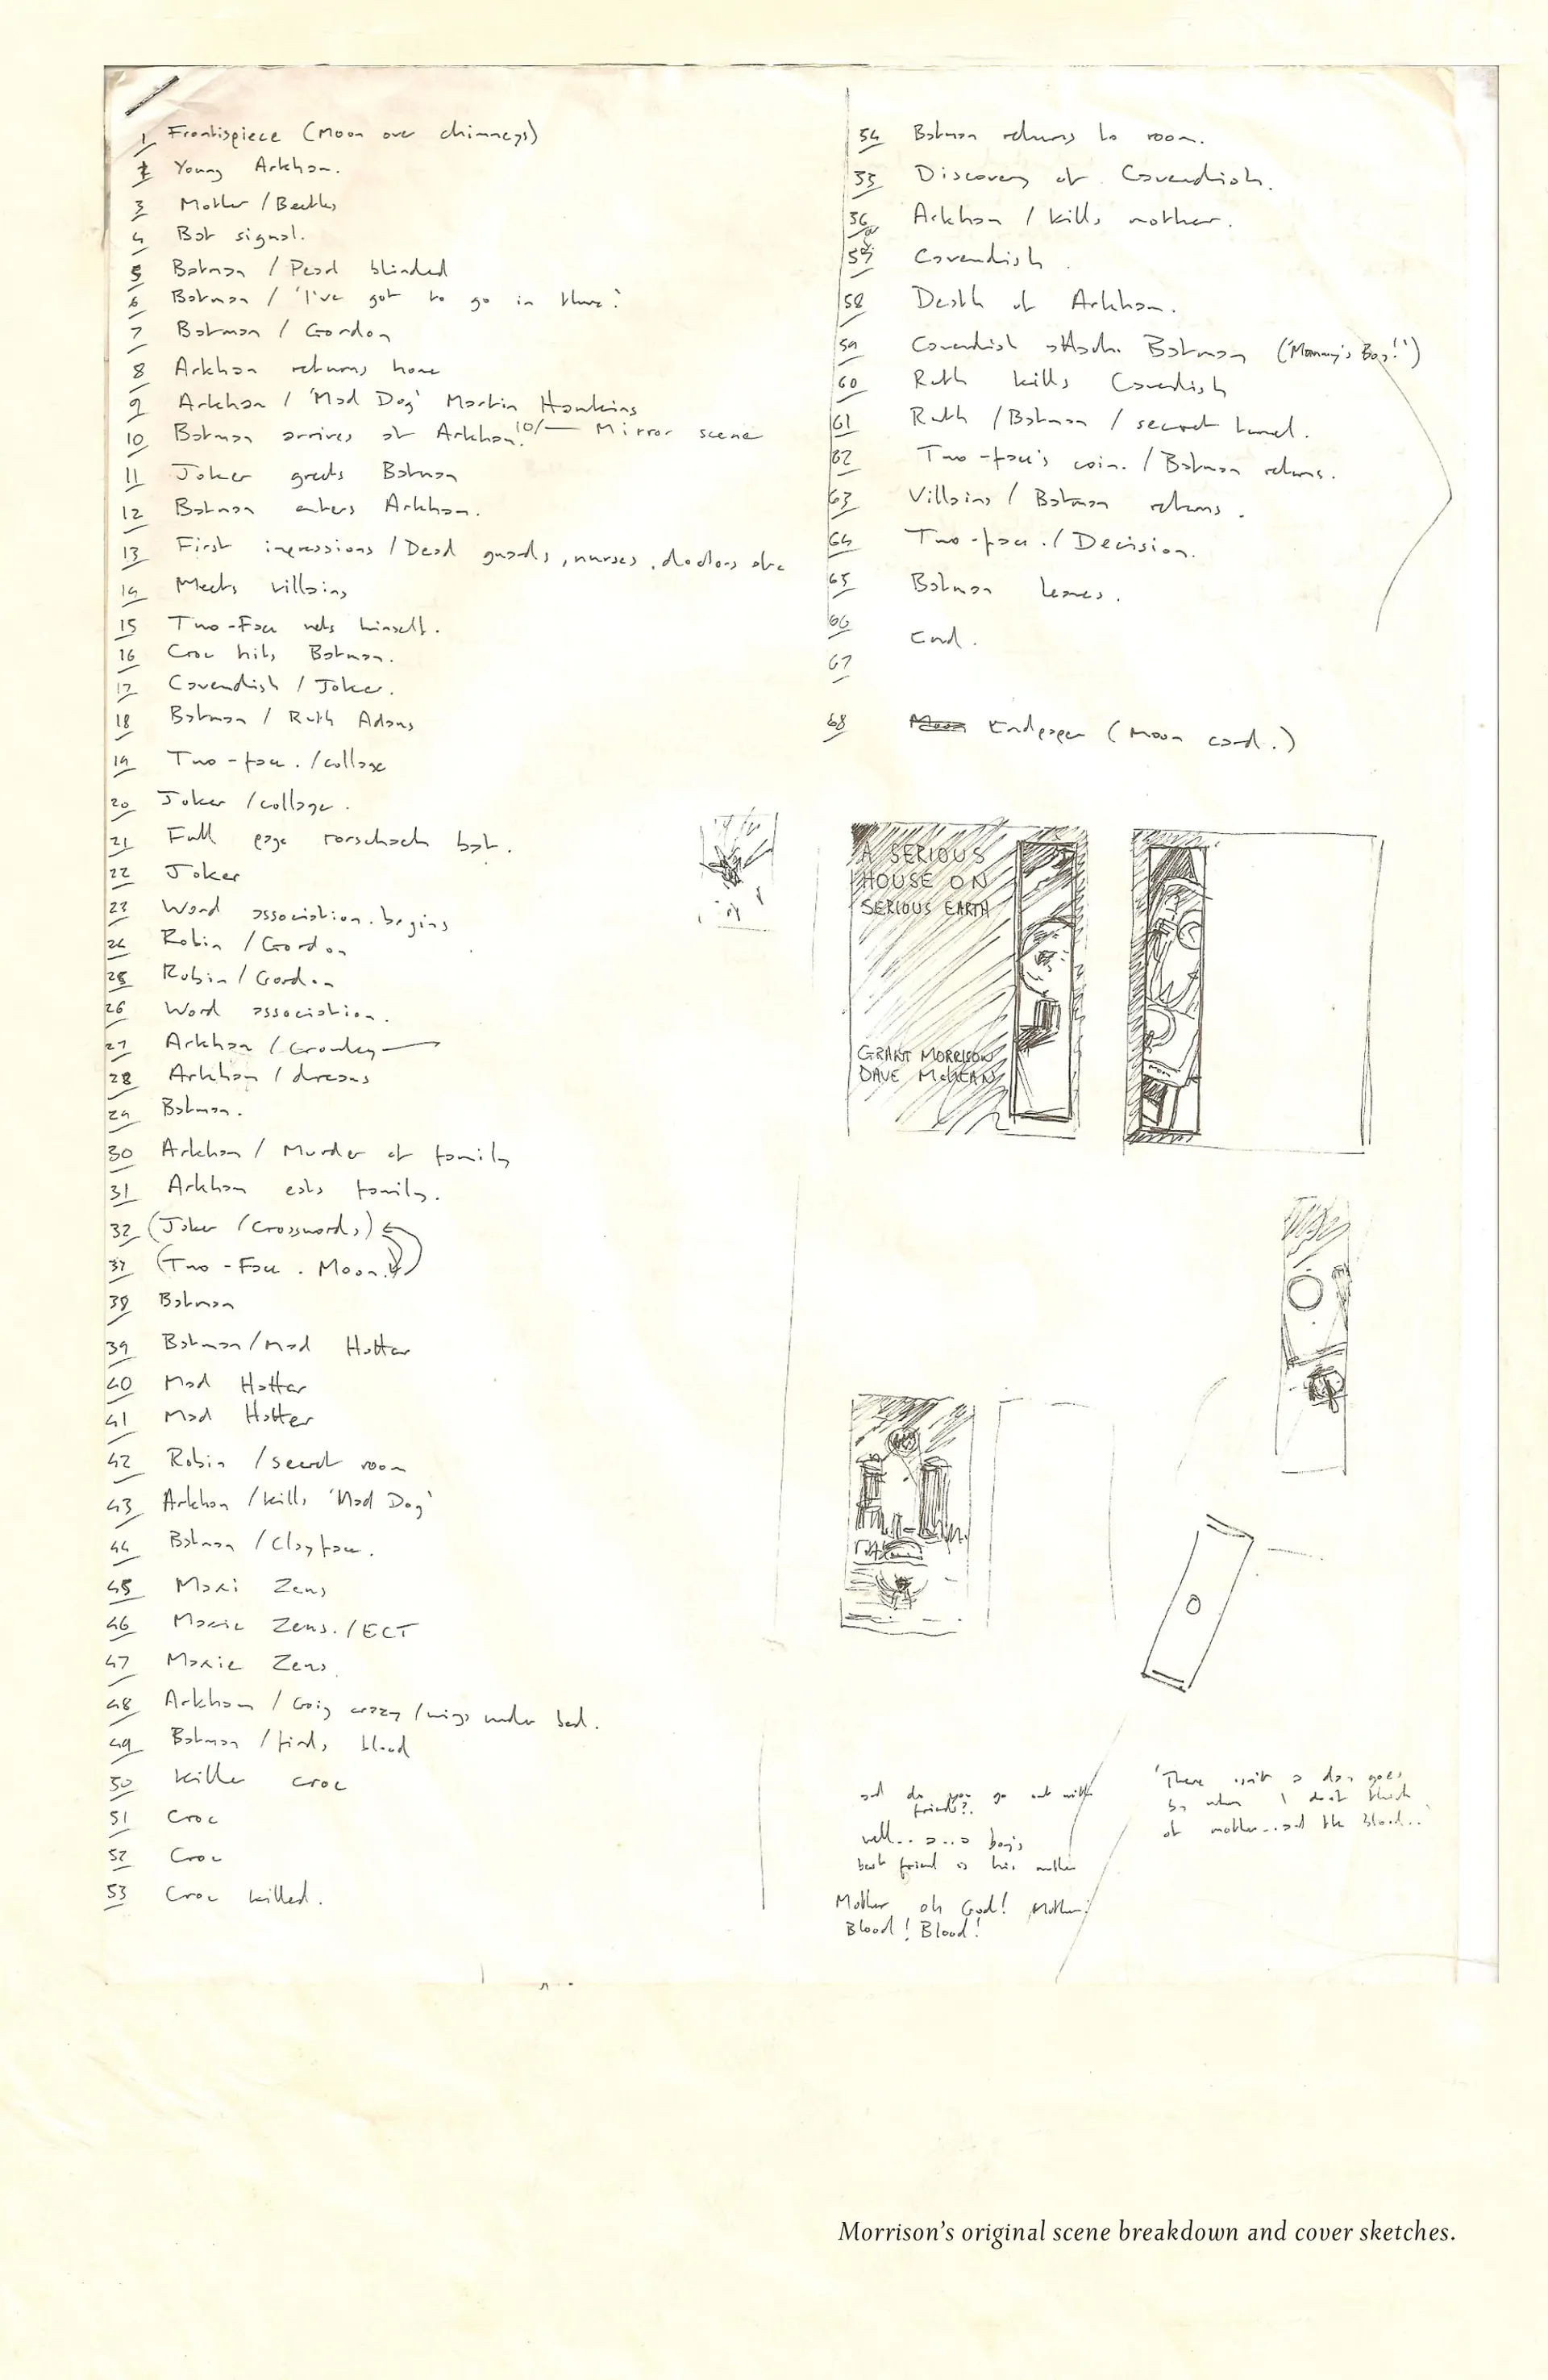 1 Frontispiece (Moon over chimneys)
2 Young Arkham.
3 Mother / Beetles
4 Bat signal.
5 Batman / Pearl blinded
6 Batman / 'I've got to go in there.'
7 Batman / Gordon
8 Arkham returns home
9 Arkham / 'Mad Dog' Martin Hawkins
10 Batman arrives at Arkham. 10/— Mirror scene
11 Joker greets Batman
12 Batman enters Arkham.
13 First impressions / Dead guards, nurses, doctors etc
14 Meets villains
15 Two-Face wets himself.
16 Croc hits Batman.
17 Cavendish / Joker.
18 Batman / Ruth Adams
19 Two-face. / collage
20 Joker / collage.
21 Full page rorschach bat.
22 Joker
23 Word association begins
24 Robin / Gordon
25 Robin / Gordon
26 Word association.
27 Arkham / Crowley
28 Arkham / dreams
29 Batman.
30 Arkham / Murder of family
31 Arkham eats family.
32 (Joker / Crosswords)
37 (Two-Face. Moon.)
38 Batman
39 Batman / Mad Hatter
40 Mad Hatter
41 Mad Hatter
42 Robin / secret room
43 Arkham / kills 'Mad Dog'
44 Batman / Clayface.
45 Maxi Zeus
46 Maxie Zeus. / ECT
47 Maxie Zeus
48 Arkham / Going crazy / wings under bed.
49 Batman / finds blood
50 Killer Croc
51 Croc
52 Croc
53 Croc killed.
54 Batman returns to room.
55 Discovery of Cavendish.
56 Arkham / kills mother.
57 Cavendish.
58 Death of Arkham.
59 Cavendish attacks Batman ('Mommy's Boy!')
60 Ruth kills Cavendish
61 Ruth / Batman / secret tunnel.
62 Two-face's coin. / Batman returns.
63 Villains / Batman returns.
64 Two-face. / Decision.
65 Batman leaves.
66 End.
67
68 Endpaper (Moon card.)
A SERIOUS
HOUSE ON
SERIOUS EARTH
GRANT MORRISON
DAVE McKEAN
and do you go out with
friends?
well... a... a boy's
best friend is his mother
Mother oh God! Mother!
Blood! Blood!
'There isn't a day goes
by when I don't think
of mother... and the Blood...'
Morrison's original scene breakdown and cover sketches.